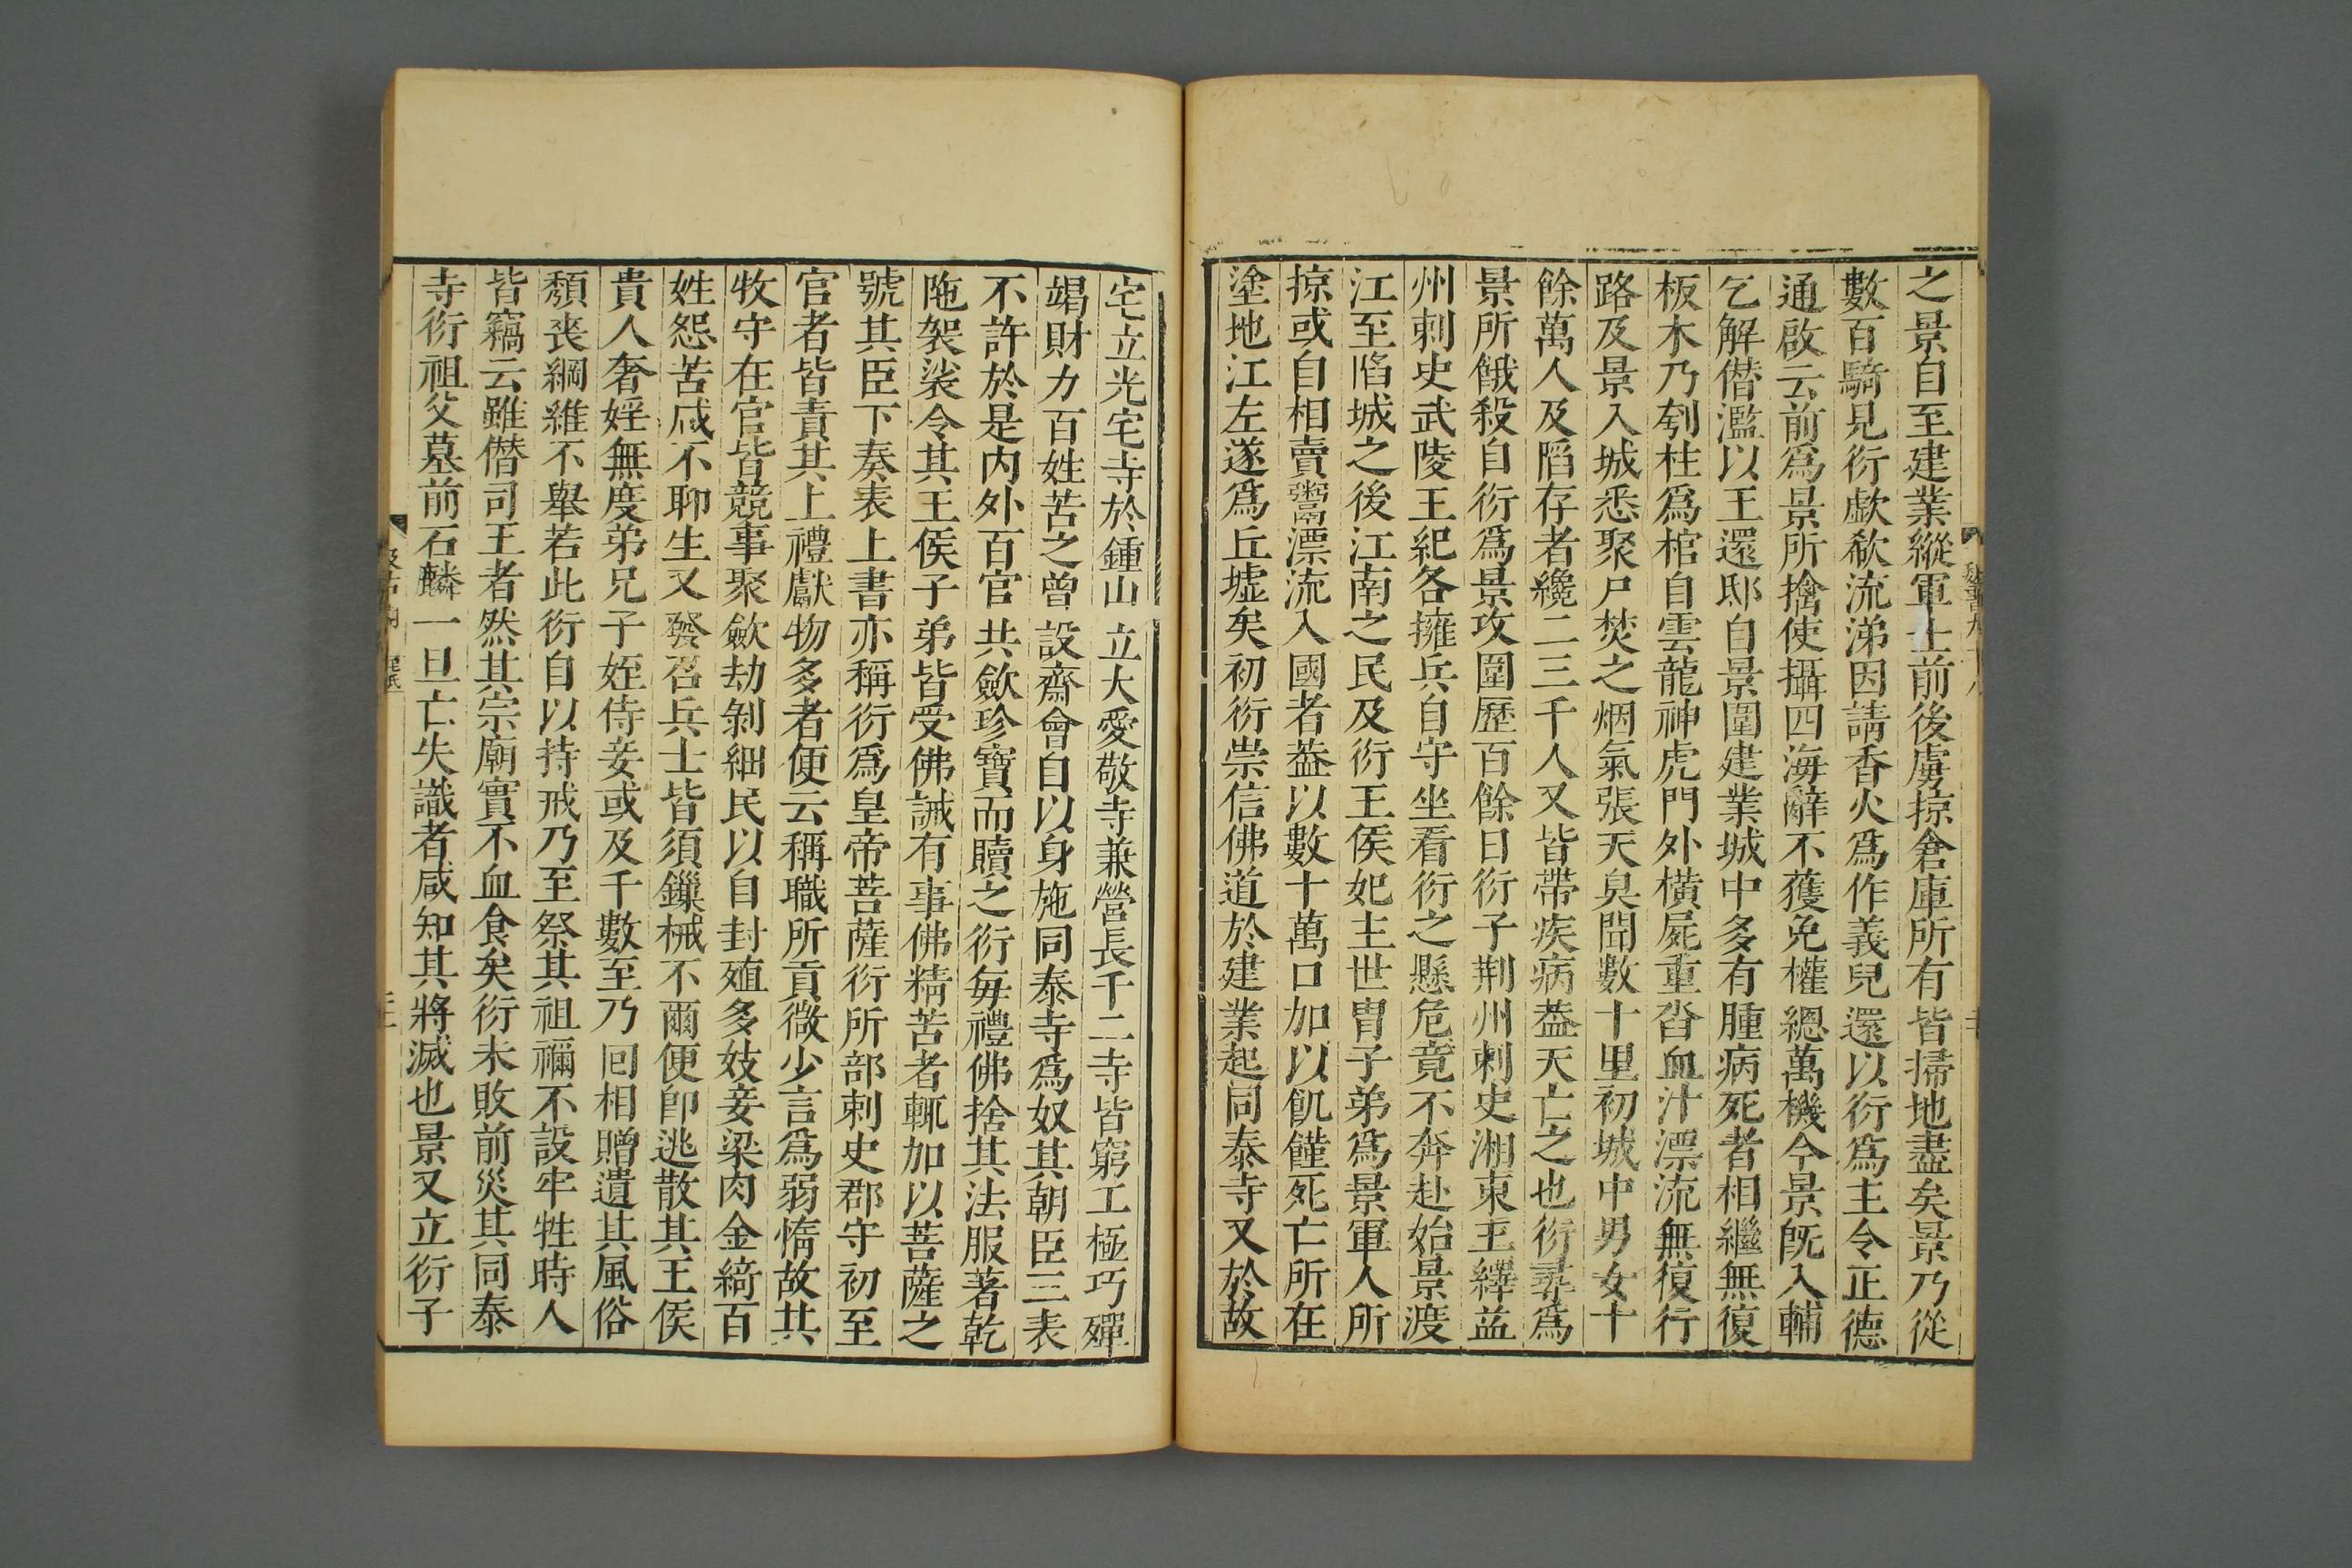 之景自至建業縱軍士前後虜掠倉庫所有皆掃地盡矣景乃從
數百騎見衍歔欷流涕因請香火爲作義兒還以衍爲主令正德
通啟云前爲景所擒使攝四海辭不獲免權總萬機今景旣入輔
乞解僣濫以王還邸自景圍建業城中多有腫病死者相繼無復
板木乃刳柱爲棺自雲龍神虎門外橫屍重沓血汁漂流無復行
路及景入城悉聚尸焚之烟氣張天臭聞數十里初城中男女十
餘萬人及陷存者纔二三千人又皆帶疾病葢天亡之也衍尋爲
景所餓殺自衍爲景攻圍歷百餘日衍子荆州刺史湘東王繹益
州刺史武陵王紀各擁兵自守坐看衍之懸危竟不奔赴始景渡
江至陷城之後江南之民及衍王侯妃主世胄子弟爲景軍人所
掠或自相賣鬻漂流入國者葢以數十萬口加以飢饉死亡所在
塗地江左遂爲丘墟矣初衍崇信佛道於建業起同泰寺又於故
宅立光宅寺於鍾山立大愛敬寺兼營長千二寺皆窮工極巧殫
竭財力百姓苦之曾設齋會自以身施同泰寺爲奴其朝臣三表
不許於是内外百官共斂珍寶而贖之衍每禮佛捨其法服著乾
陁袈裟令其王侯子弟皆受佛誡有事佛精苦者輒加以菩薩之
號其臣下奏表上書亦稱衍爲皇帝菩薩衍所部刺史郡守初至
官者皆責其上禮獻物多者便云稱職所貢微少言爲弱惰故其
牧守在官皆競事聚斂劫剝細民以自封殖多妓妾粱肉金綺百
姓怨苦咸不聊生又發召兵士皆須鏁械不爾便卽逃散其王侯
貴人奢婬無度弟兄子姪侍妾或及千數至乃囘相贈遺其風俗
頽喪綱維不舉若此衍自以持戒乃至祭其祖禰不設牢牲時人
皆竊云雖僣司王者然其宗廟實不血食矣衍未敗前災其同泰
寺衍祖父墓前石麟一旦亡失識者咸知其將滅也景又立衍子